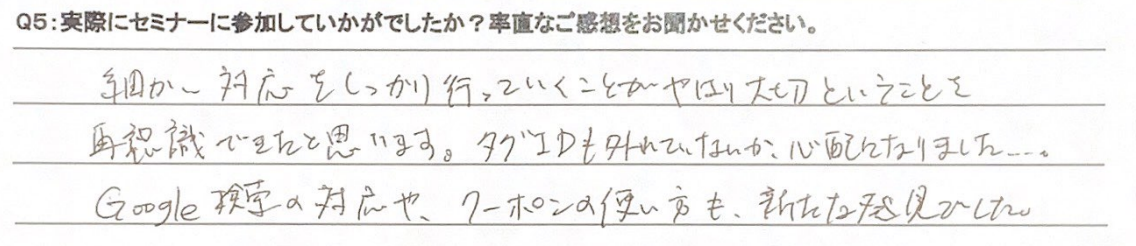 Q5:実際にセミナーに参加していかがでしたか?率直なご感想をお聞かせください。
細かい対応をしっかり行っていくことがやはり大切ということを
再認識できたと思います。タグIDも外れていないか、心配になりました……。
Google検索の対応や、クーポンの使い方も、新たな発見でした。